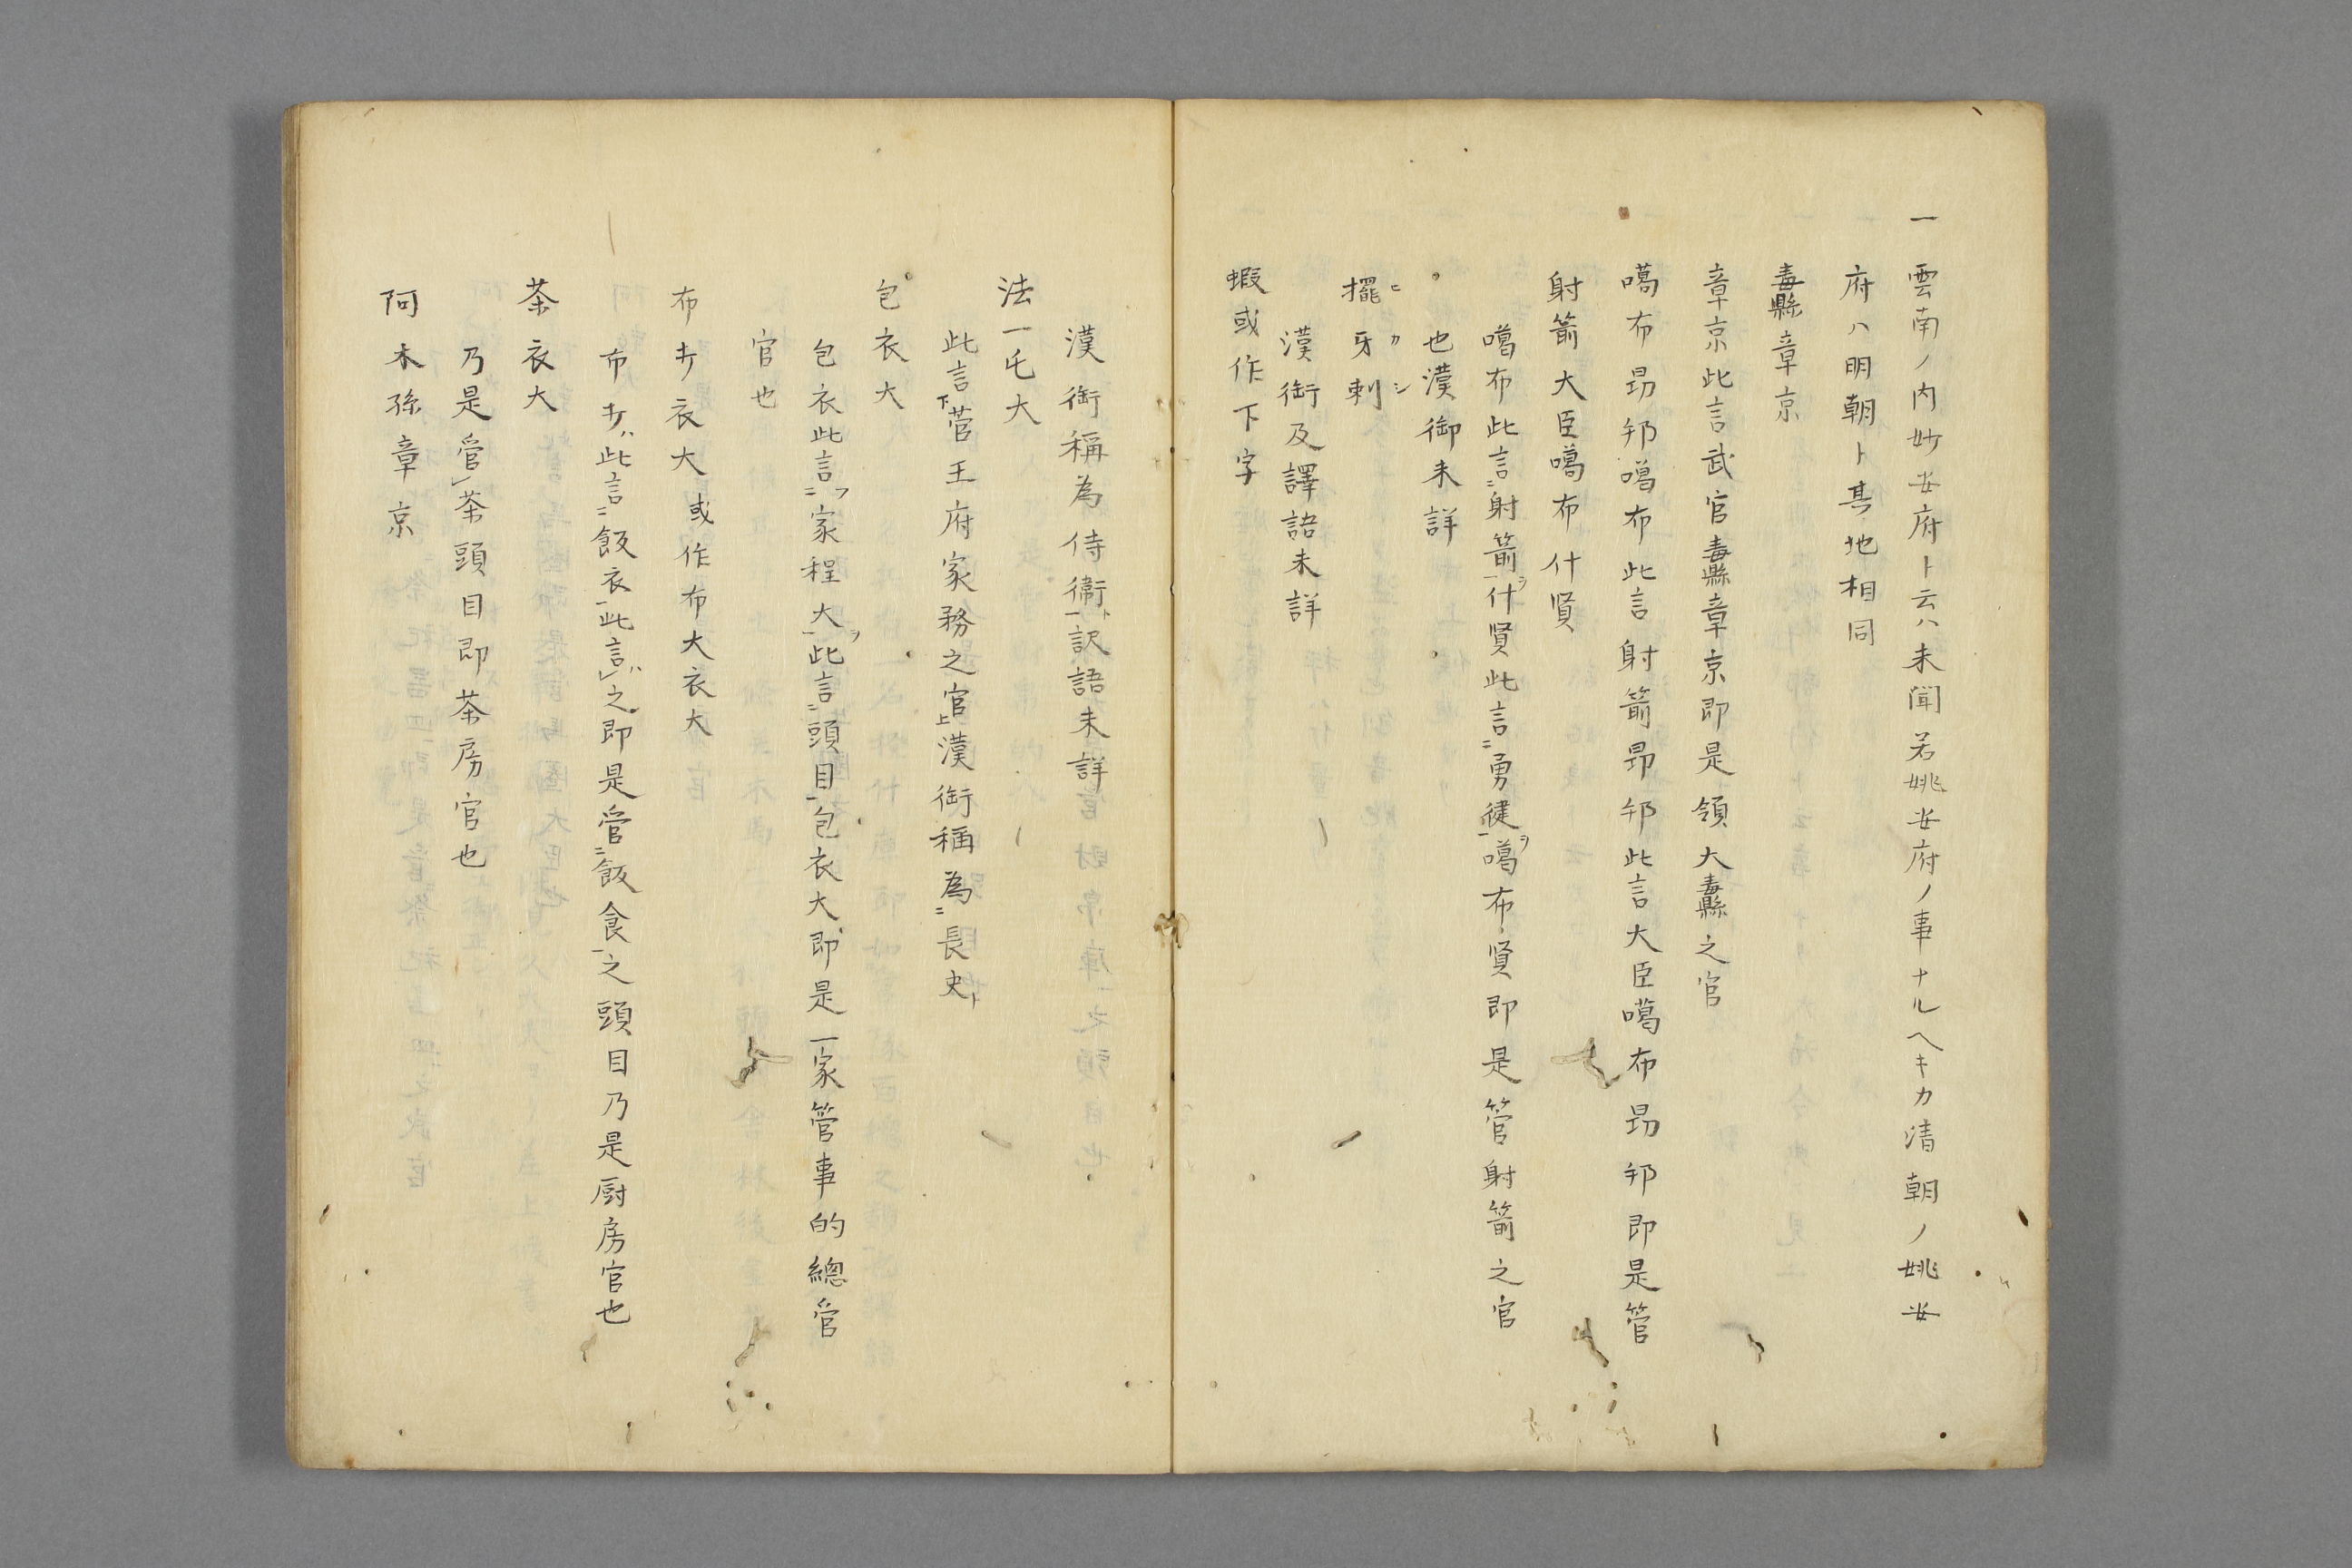 一 雲南ノ内妙安府ト云ハ未聞若姚安府ノ事ナルヘキカ清朝ノ姚安
府ハ明朝ト其地相同
纛章京
章京此言武官纛章京即是領大纛之官
噶布昻邦噶布此言射箭昻邦此言大臣噶布昻邦即是管
射箭大臣噶布什賢
噶布此言射箭什賢此言勇健噶布賢即是管射箭之官
也漢御未詳
擺牙剌
漢衘及譯語未詳
蝦或作下字
漢衘稱為侍衞訳語未詳
法一乇大
此言管王府家務之官漢衘稱為長史
包衣大
包衣此言家程大此言頭目包衣大即是一家管事的總管
官也
布才衣大或作布大衣大
布才此言飯衣此言之即是管飯食之頭目乃是厨房官也
茶衣大
乃是管茶頭目即茶房官也
阿木孫章京